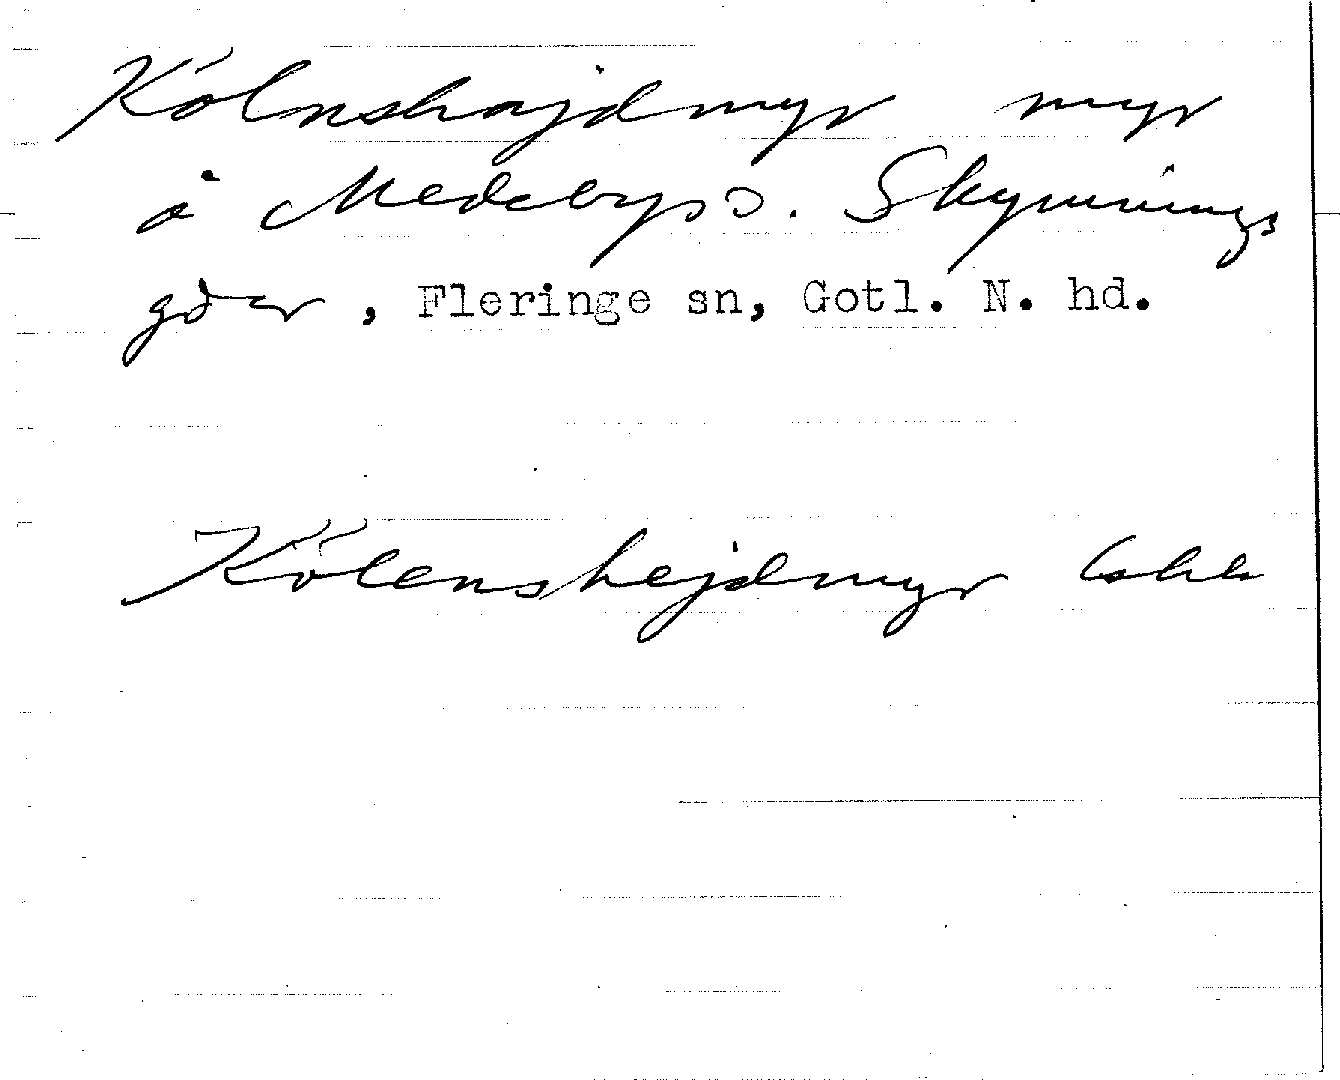 Kölnshajdmyr myr
å Medebys o. Skymmings
gdar, Fleringe sn, Gotl. N. hd.
Kölenshejdmyr